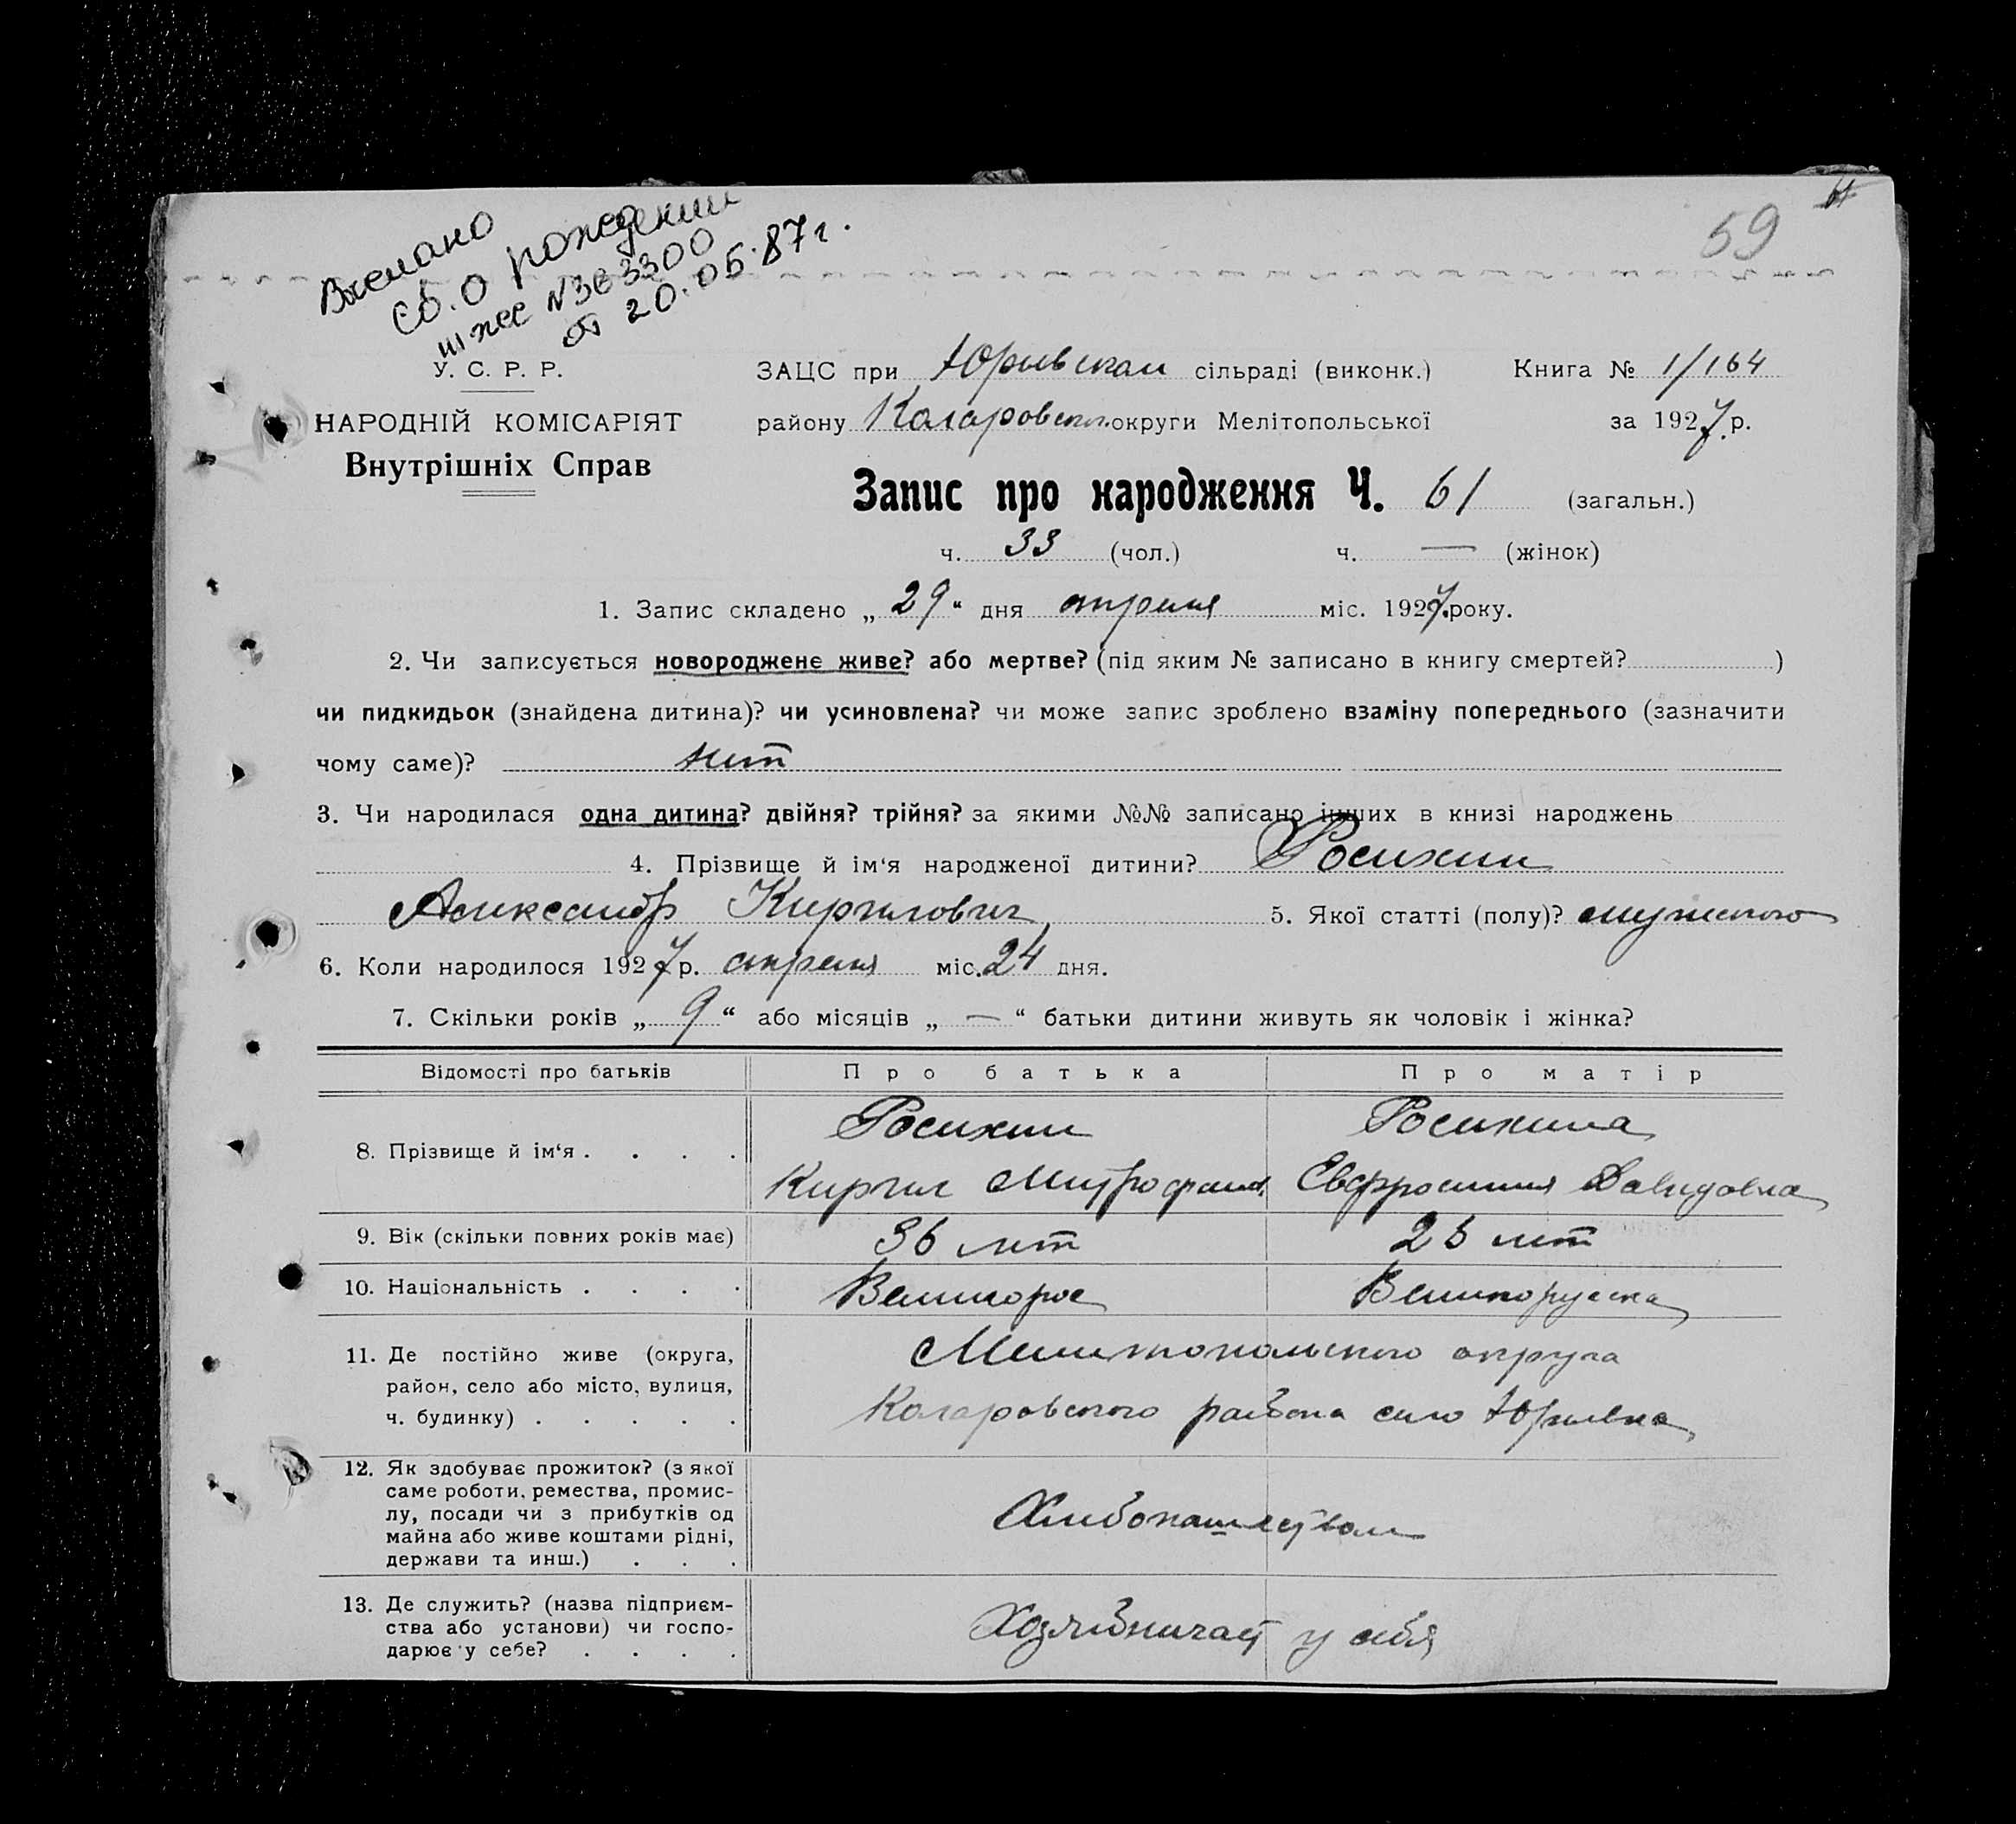 59
Выдано
св. о рождении
№ 363300
от 20.05.87г.
У. С. Р. Р.
НАРОДНІЙ КОМІСАРІЯТ
Внутрішніх Справ
ЗАЦС при Юрьевском сільраді (виконк.) Книга № 1/164
району Коларовском округи Мелітопольської за 1927 р.
Запис про народження Ч. 61 (загальн.)
ч. 33 (чол.) ч. — (жінок)
1. Запис складено „ 29 “ дня апреля міс. 1927 року.
2. Чи записується новороджене живе? або мертве? (під яким № записано в книгу смертей? )
чи пидкидьок (знайдена дитина)? чи усиновлена? чи може запис зроблено взаміну попереднього (зазначити
чому саме)? нет
3. Чи народилася одна дитина? двійня? трійня? за якими №№ записано інших в книзі народжень
4. Прізвище й ім‘я народженої дитини? Росихин
Александр Кирилович 5. Якої статті (полу)? мужского
6. Коли народилося 1927 р. апреля міс. 24 дня.
7. Скільки років „ 9 “ або місяців „ — “ батьки дитини живуть як чоловік і жінка?
Відомості про батьків Про батька Про матір
8. Прізвище й ім‘я . . . . Росихин Росихина
Кирил Митрофанов. Евфросиния Давидовна
9. Вік (скільки повних років має) 36 лет 25 лет
10. Національність . . . . Великорос Великоруска
11. Де постійно живе (округа, Мелитопольского округа
район, село або місто, вулиця,
ч. будинку) . . . . . Коларовского района село Юрьевка
12. Як здобуває прожиток? (з якої
саме роботи, ремества, промис-
лу, посади чи з прибутків од Хлебопашеством
майна або живе коштами рідні,
держави та инш.) . . .
13. Де служить? (назва підприєм-
ства або установи) чи госпо- Хозяйничает у себя
дарює у себе? . . . .